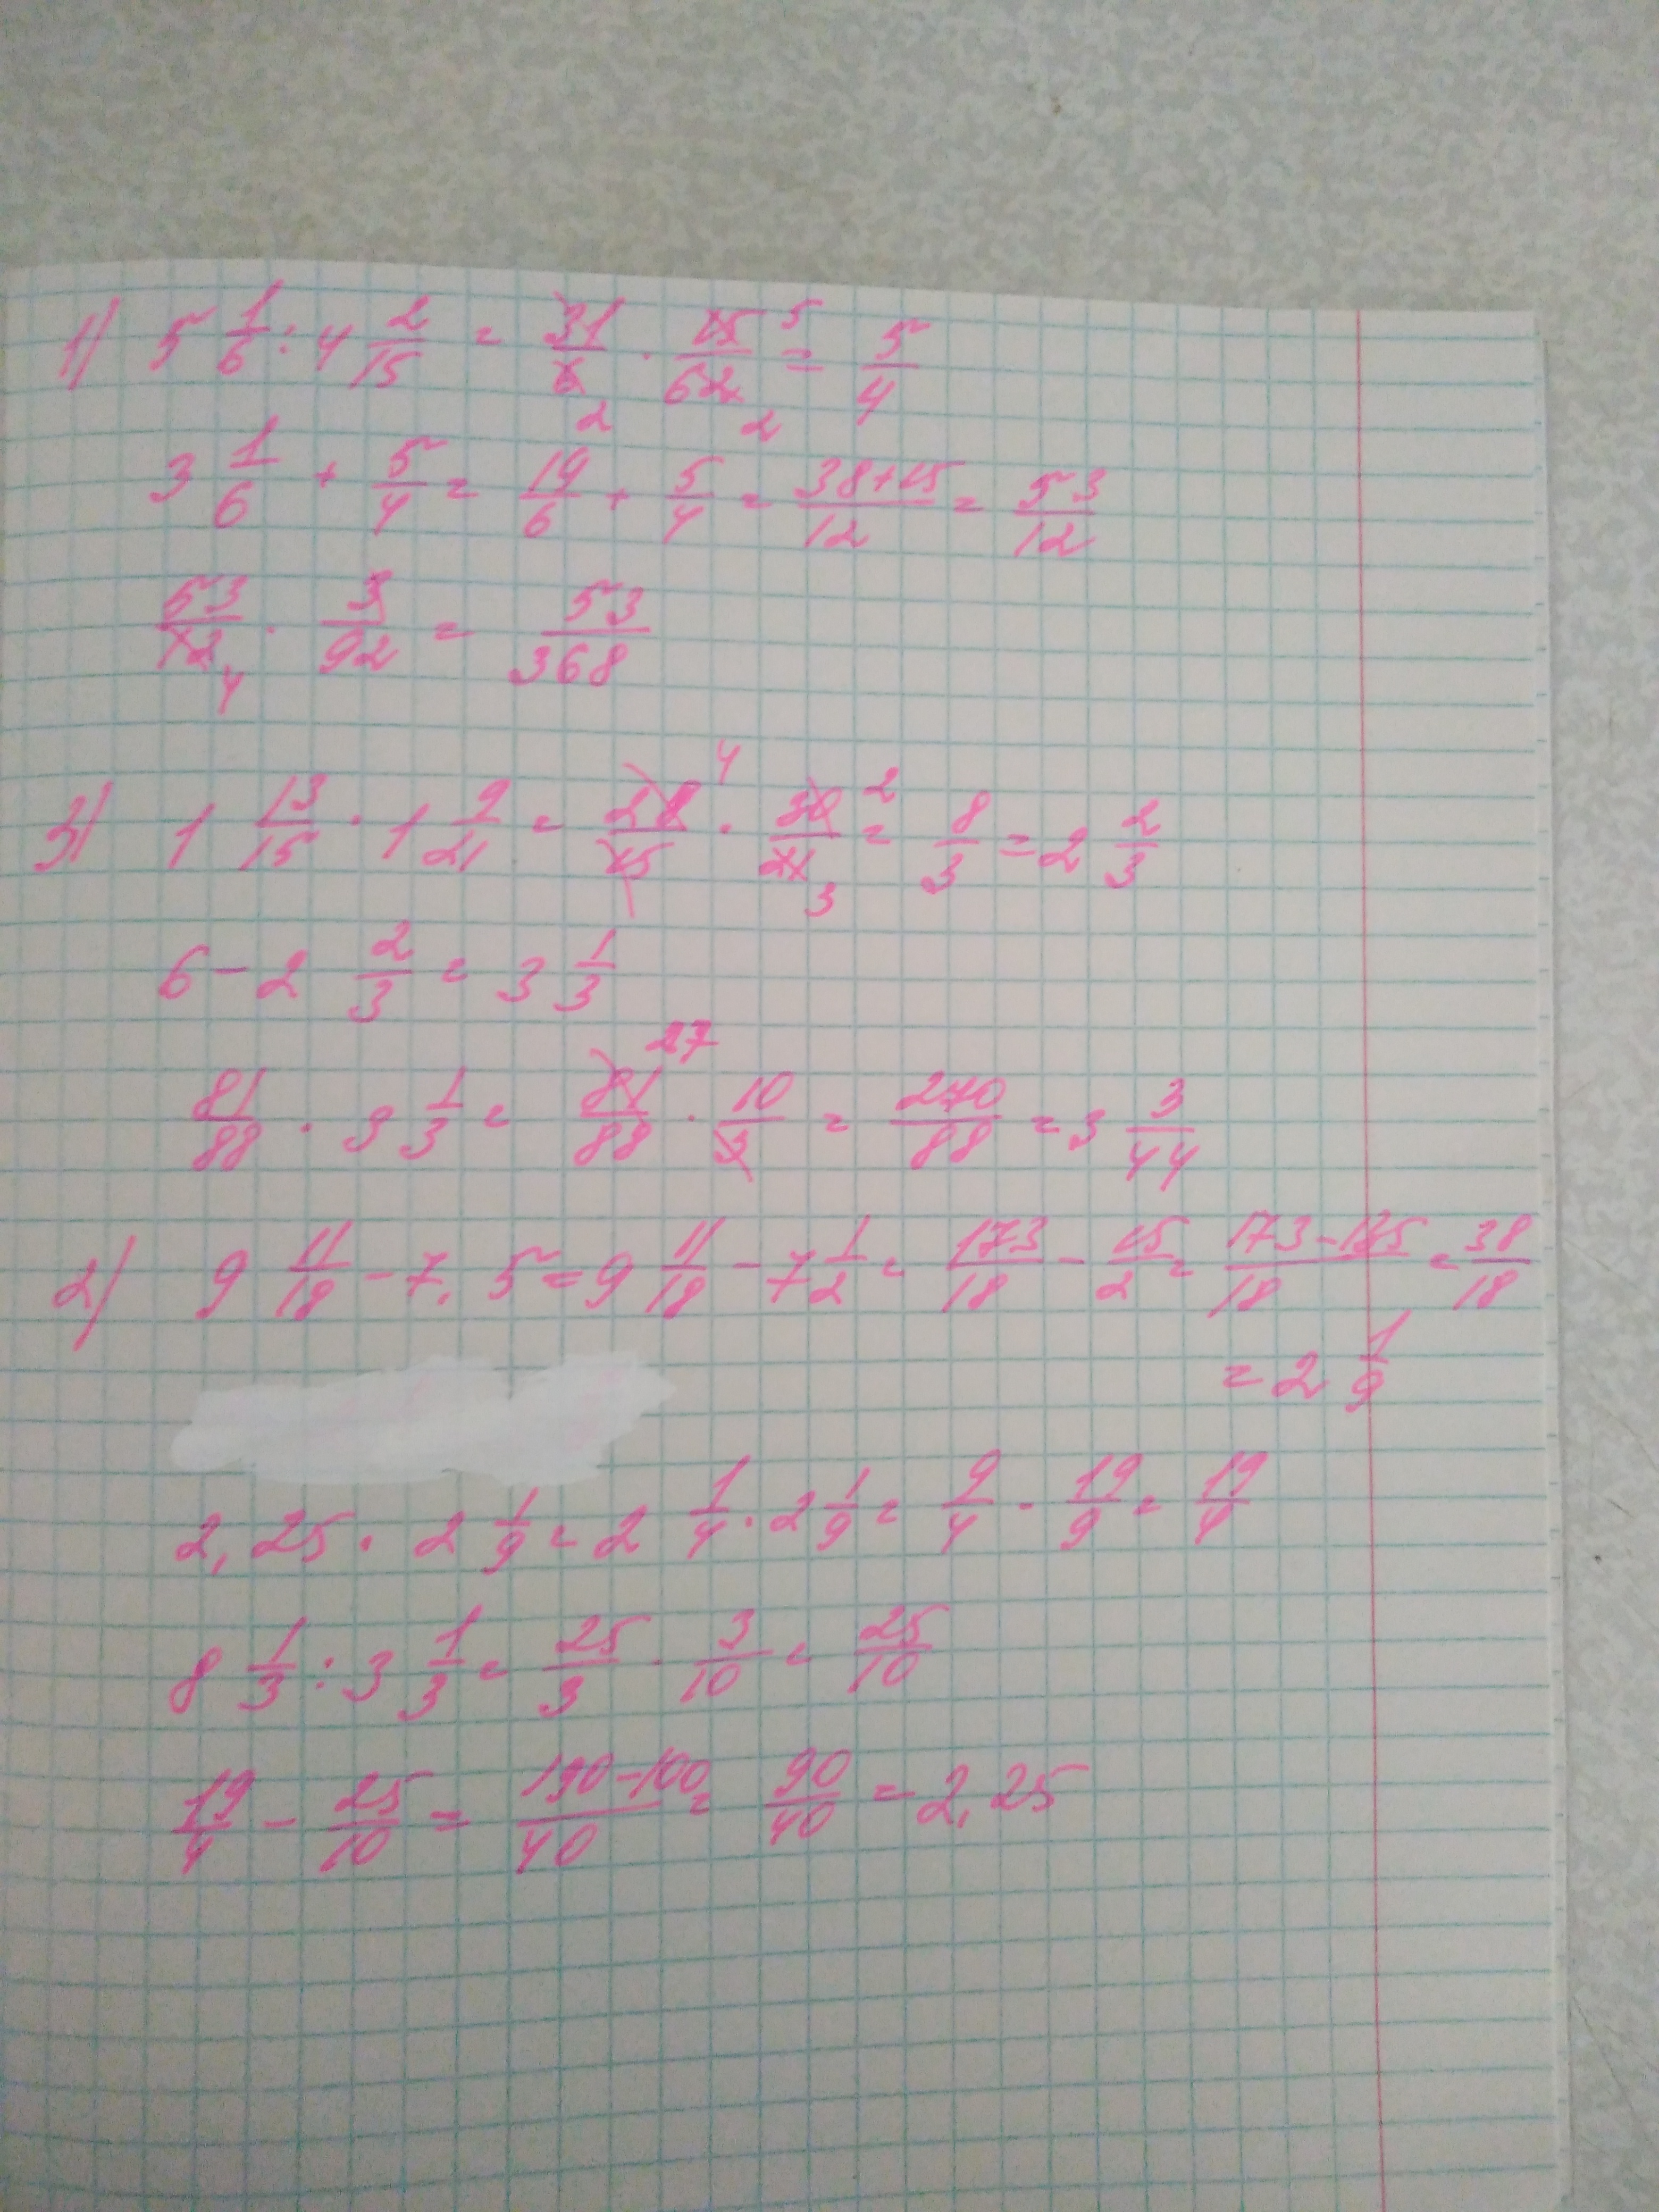 1) 5 1/6 : 4 2/15 = 31/6 2 · 15/62 5/2 = 5/4
3 1/6 + 5/4 = 19/6 + 5/4 = 38+15/12 = 53/12
53/12 4 · 3/92 = 53/368
3) 1 13/15 · 1 9/21 = 28/15 4 · 30/21 2/3 = 8/3 = 2 2/3
6 - 2 2/3 = 3 1/3
81/88 · 3 1/3 = 81/88 27 · 10/3 = 270/88 = 3 3/44
2) 9 11/18 - 7,5 = 9 11/18 - 7 1/2 = 173/18 - 15/2 = 173-135/18 = 38/18
= 2 1/9
2,25 · 2 1/9 = 2 1/4 · 2 1/9 = 9/4 · 19/9 = 19/4
8 1/3 : 3 1/3 = 25/3 · 3/10 = 25/10
19/4 - 25/10 = 190-100/40 = 90/40 = 2,25